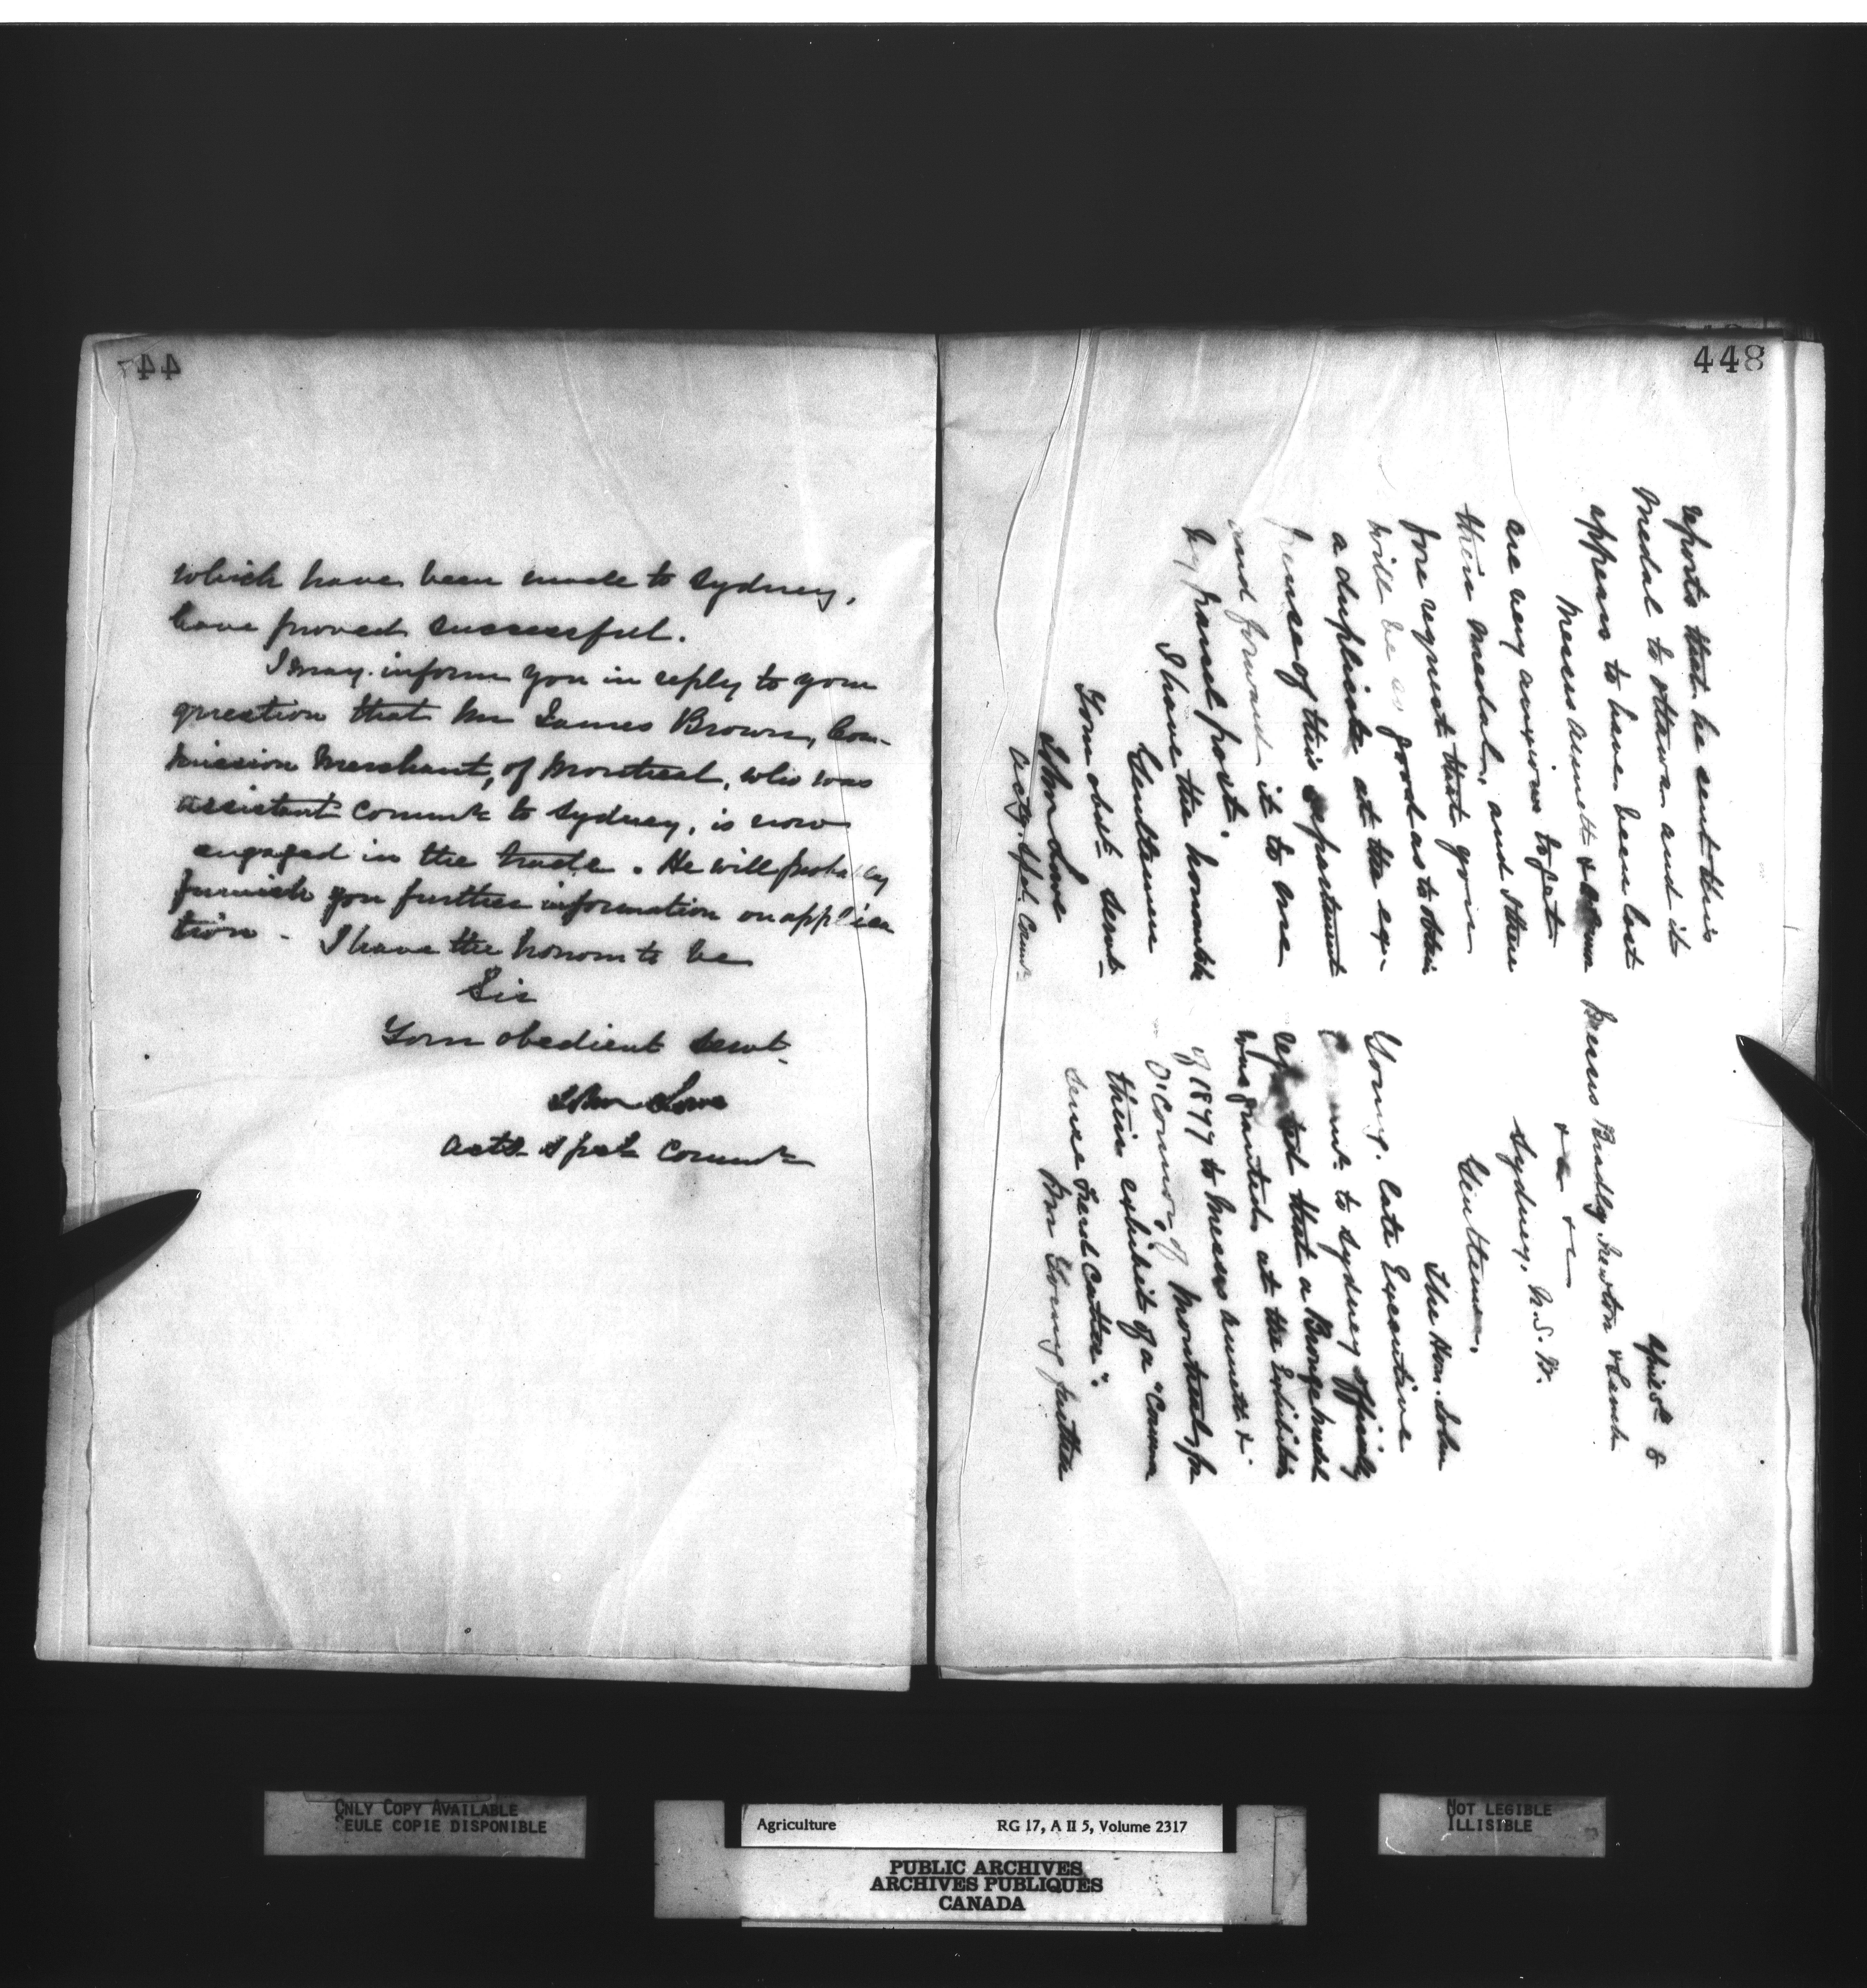 447
which have been made to Sydney,
have proved successful.
I may inform you in reply to your
question that Mr James Brown, Com-
mission Merchant, of Montreal, who was
assistant Commr to Sydney, is now
engaged in the trade. He will probably
furnish you further information on applica
tion. I have the honour to be
Sir
Your obedient Servt.
John Lowe
Actg. Spcl Commr
448
April 5th 8
Messrs Bradly, Newton & Lamb
& & &c
Sydney, N.S.W.
Gentlemen,
The Hon. John
Young, late Executive
to Sydney officially
reported that a Bronze Medal
was granted at the Exhibition
of 1877 to Messrs Bennett &
O'Connor, of Montreal, for
their exhibit of a "Canna
dense Feed Cutter".
Mr Young further
reports that he sent this
Medal to Ottawa and it
appears to have been lost
Messrs Bennett &
are very anxious to get
their medal, and there
fore request that you
will be so good as to obtain
a duplicate at the ex-
pense of this department
and forward it to one
by parcel post.
I have the honour to be
Gentlemen
Your obdt. Servt.
John Lowe
Actg. Spcl. Commr
ONLY COPY AVAILABLE
SEULE COPIE DISPONIBLE
Agriculture RG 17, A II 5, Volume 2317
PUBLIC ARCHIVES
ARCHIVES PUBLIQUES
CANADA
NOT LEGIBLE
ILLISIBLE